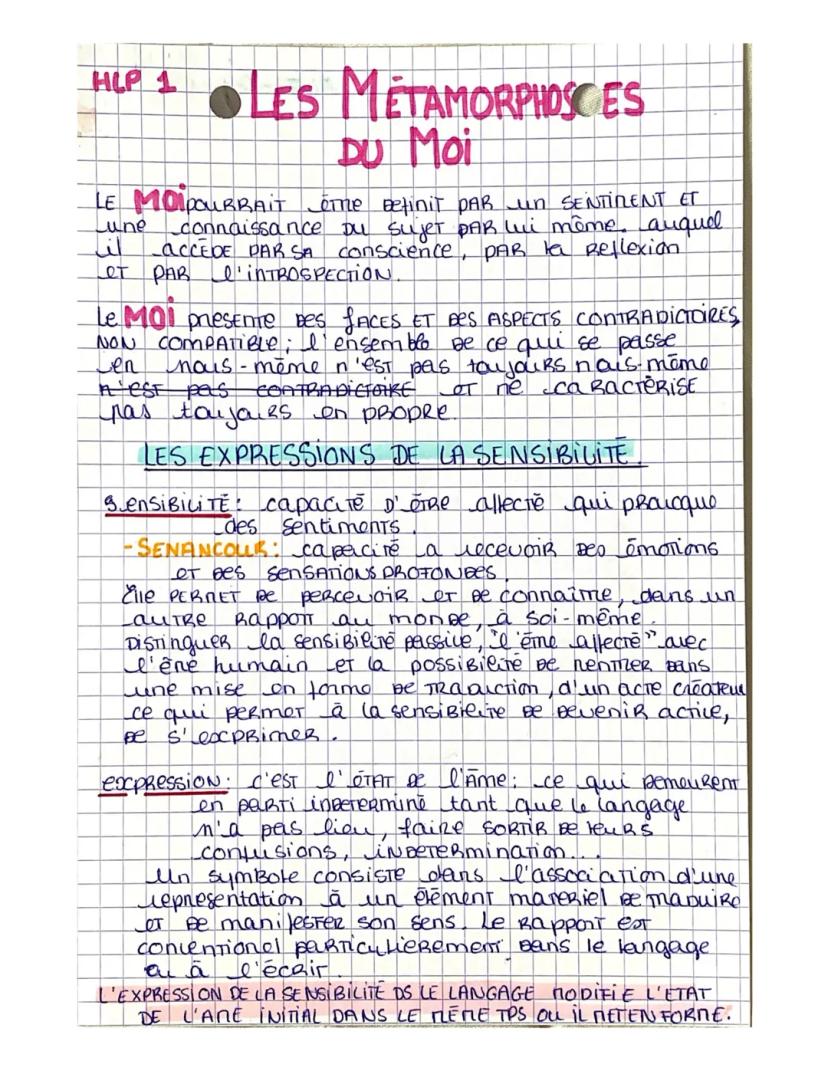 HLP 1
LES MÉTAMORPHOSES
DU MOi
LE MOi POURRAIT être DEfiniT PAR un SENTIMENT ET
une connaissance DU SUJET PAR lui même, auquel
il ACCÈDE PAR SA conscience, PAR la REflexion
ET PAR l'iNTROSPECTION.
Le MOi présente DES fACES ET DES ASPECTS CONTRADICTOIRES,
NON COMPATIBLE ; l'ensemble DE ce qui se passe
en nous-même n'est pas toujours nous-même
n'EST pas CONTRADICTOIRE ET ne CARACTÉRISE
pas toujours en PROPRE.
LES EXPRESSIONS DE LA SENSIBILITÉ.
SENSIBILITÉ : CAPACITÉ D'ÊTRE affecté qui PROVOQUE
des sentiments.
- SENANCOUR : capacité à recevoir DES émotions
ET DES SENSATIONS PROFONDES.
Elle PERMET DE percevoir et de connaitre, dans un
AUTRE RAPPORT au monde, à soi-même.
DISTINGUER la sensibilité passive, "l'être affecté" avec
l'être humain et la possibilité DE rentrer DANS
une mise en forme DE TRADUCTION, d'un acte créateur
ce qui permet à la sensibilité DE DEVENIR active,
DE s'exprimer.
expression : c'est l'ÉTAT DE l'Âme : ce qui DEMEURENT
en PARTI INDETERMINÉ tant que le langage
n'a pas lieu, faire SORTIR DE leurs
confusions, INDETERMINATION...
Un symbole consiste dans l'association d'une
représentation à un élément materiel DE
ET DE manifester son sens. Le RAPPORT EST
conventionel PARTICULIEREMENT DANS le langage
à l'écrit.
L'EXPRESSION DE LA SENSIBILITÉ DS LE LANGAGE MODIFIE L'ETAT
DE L'AME INITIAL DANS LE MÊME TPS OU IL MET EN FORME.